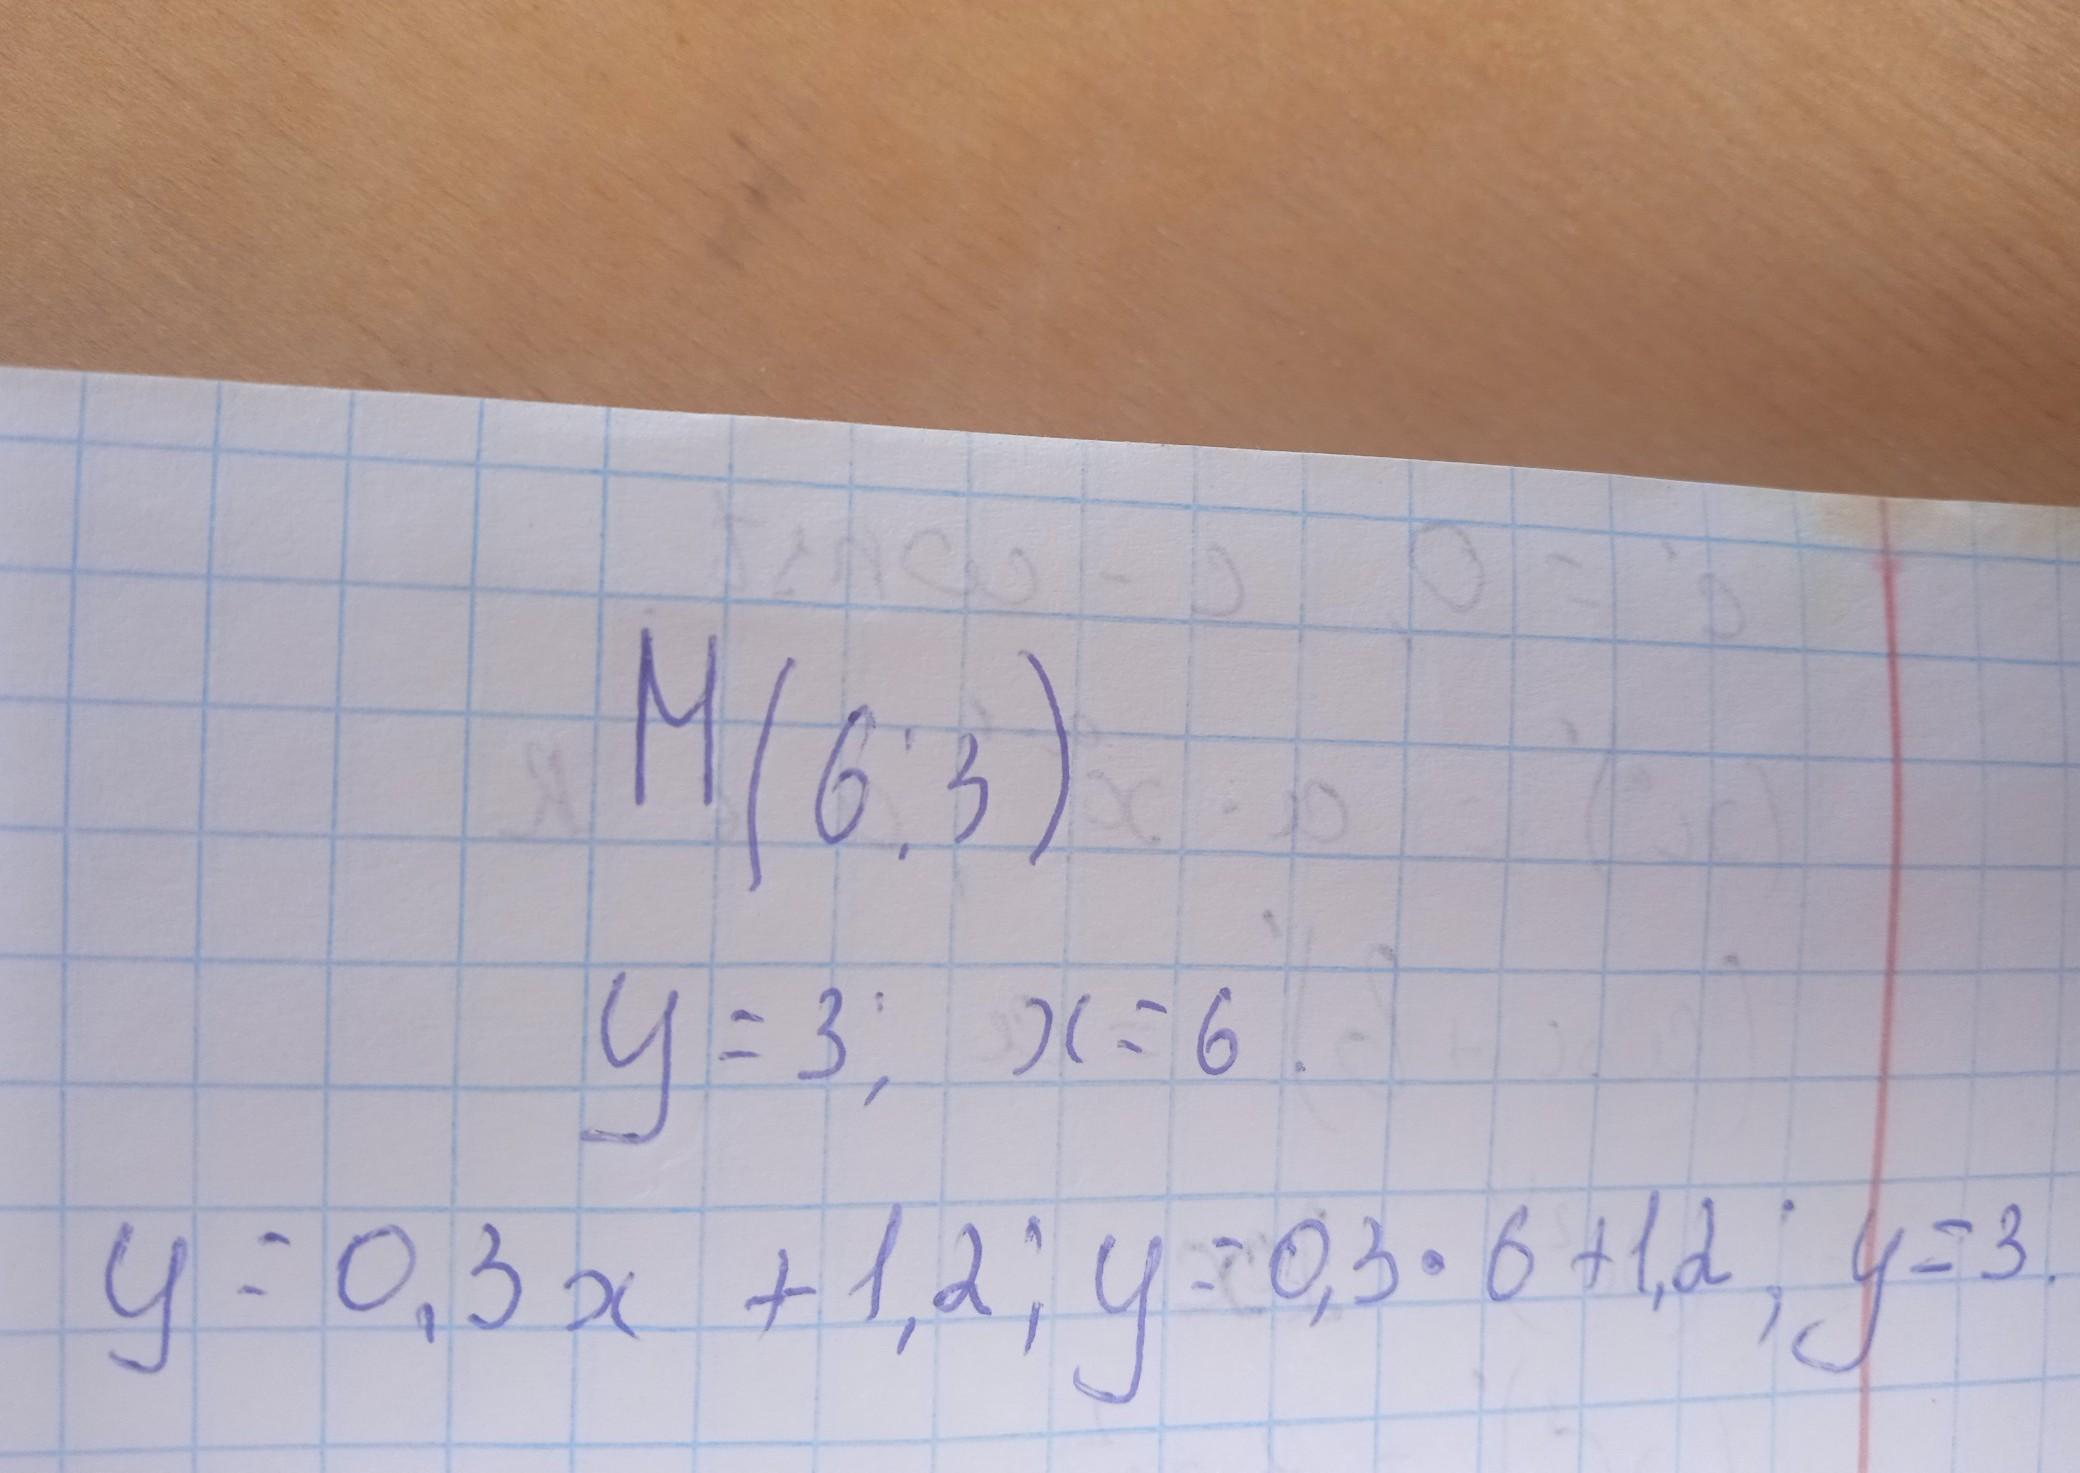 M(6;3)
y=3; x=6.
y=0,3x+1,2; y=0,3·6+1,2; y=3.